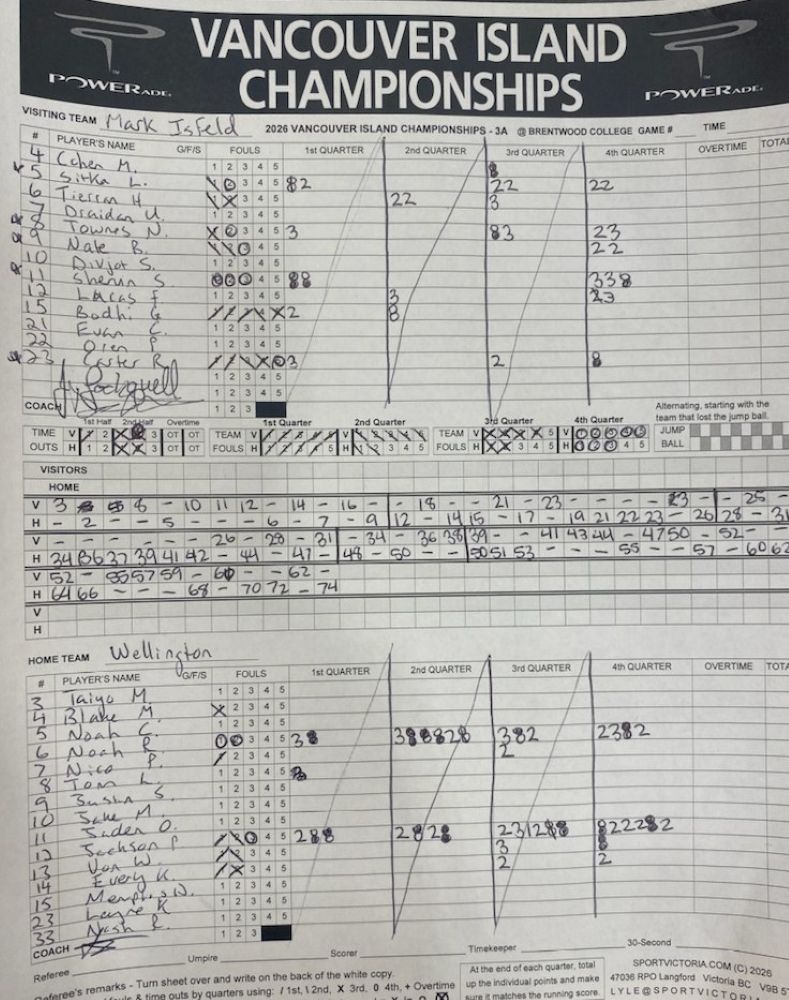 VANCOUVER ISLAND
CHAMPIONSHIPS
POWERADE
POWERADE
VISITING TEAM Mark Isfeld 2026 VANCOUVER ISLAND CHAMPIONSHIPS - 3A @ BRENTWOOD COLLEGE GAME # TIME
# PLAYER'S NAME G/F/S FOULS 1st QUARTER 2nd QUARTER 3rd QUARTER 4th QUARTER OVERTIME TOTA
4 Cohen M. 1 2 3 4 5
5 Sitka L. 3 4 5 82 22 22
6 Tierran H 3 4 5 22 3
7 Draidan U. 1 2 3 4 5
8 Townes N. 3 4 5 3 83 23
9 Nate B. 4 5 22
10 Divjot S. 1 2 3 4 5
11 S. 4 5 88 338
12 Lucas F. 1 2 3 4 5 3 23
15 Bodhi G 2 8
21 Evan C. 1 2 3 4 5
22 Oren P 1 2 3 4 5
23 Carter R 3 2 8
1 2 3 4 5
1 2 3 4 5
COACH 1 2 3
1st Half 2nd Half Overtime 1st Quarter 2nd Quarter 3rd Quarter 4th Quarter
Alternating, starting with the
team that lost the jump ball.
TIME V 2 3 OT OT TEAM V V TEAM V 5 V JUMP
OUTS H 1 2 3 OT OT FOULS H H FOULS H 3 4 5 H 4 5 BALL
VISITORS
HOME
V 3 8 - 10 11 12 - 14 - 16 - - 18 - - 21 - 23 - - - - 23 - - 25 -
H - 2 - - 5 - - - - 6 - 7 - 9 12 - 14 15 - 17 - 19 21 22 23 - 26 28 - 31
V - - - - - - 26 - 28 - 31 - 34 - 36 38 39 - - 41 43 44 - 47 50 - 52 - -
H 34 36 37 39 41 42 - 44 - 47 - 48 - 50 - - 50 51 53 - - - 55 - - 57 - 60 62
V 52 - 55 57 59 - 60 - - 62 -
H 64 66 - - - - 68 - 70 72 - 74
V
H
HOME TEAM Wellington
# PLAYER'S NAME G/F/S FOULS 1st QUARTER 2nd QUARTER 3rd QUARTER 4th QUARTER OVERTIME TOTA
3 Taiyo M. 1 2 3 4 5
4 Blake M. 2 3 4 5
5 Noah C. 1 2 3 4 5
6 Noah R. 3 4 5 38 388828 382 2382
7 Nico P. 2 3 4 5 2
8 Tom L. 1 2 3 4 5
9 S. 1 2 3 4 5
10 Jake M. 1 2 3 4 5
11 Jaden O. 1 2 3 4 5
12 Jackson P 4 5 288 2828 231288 822282
13 Von W. 3 4 5 3 8
14 Every K. 3 4 5 2 2
15 Memphis N. 1 2 3 4 5
23 Layne K 1 2 3 4 5
33 Nash R. 1 2 3 4 5
COACH 1 2 3
Referee Umpire Scorer Timekeeper 30-Second
Referee's remarks - Turn sheet over and write on the back of the white copy.
fouls & time outs by quarters using: / 1st, \ 2nd, X 3rd, O 4th, + Overtime
At the end of each quarter, total
up the individual points and make
sure it matches the running score.
SPORTVICTORIA.COM (C) 2026
47036 RPO Langford Victoria BC V9B 5
LYLE@SPORTVICTORIA